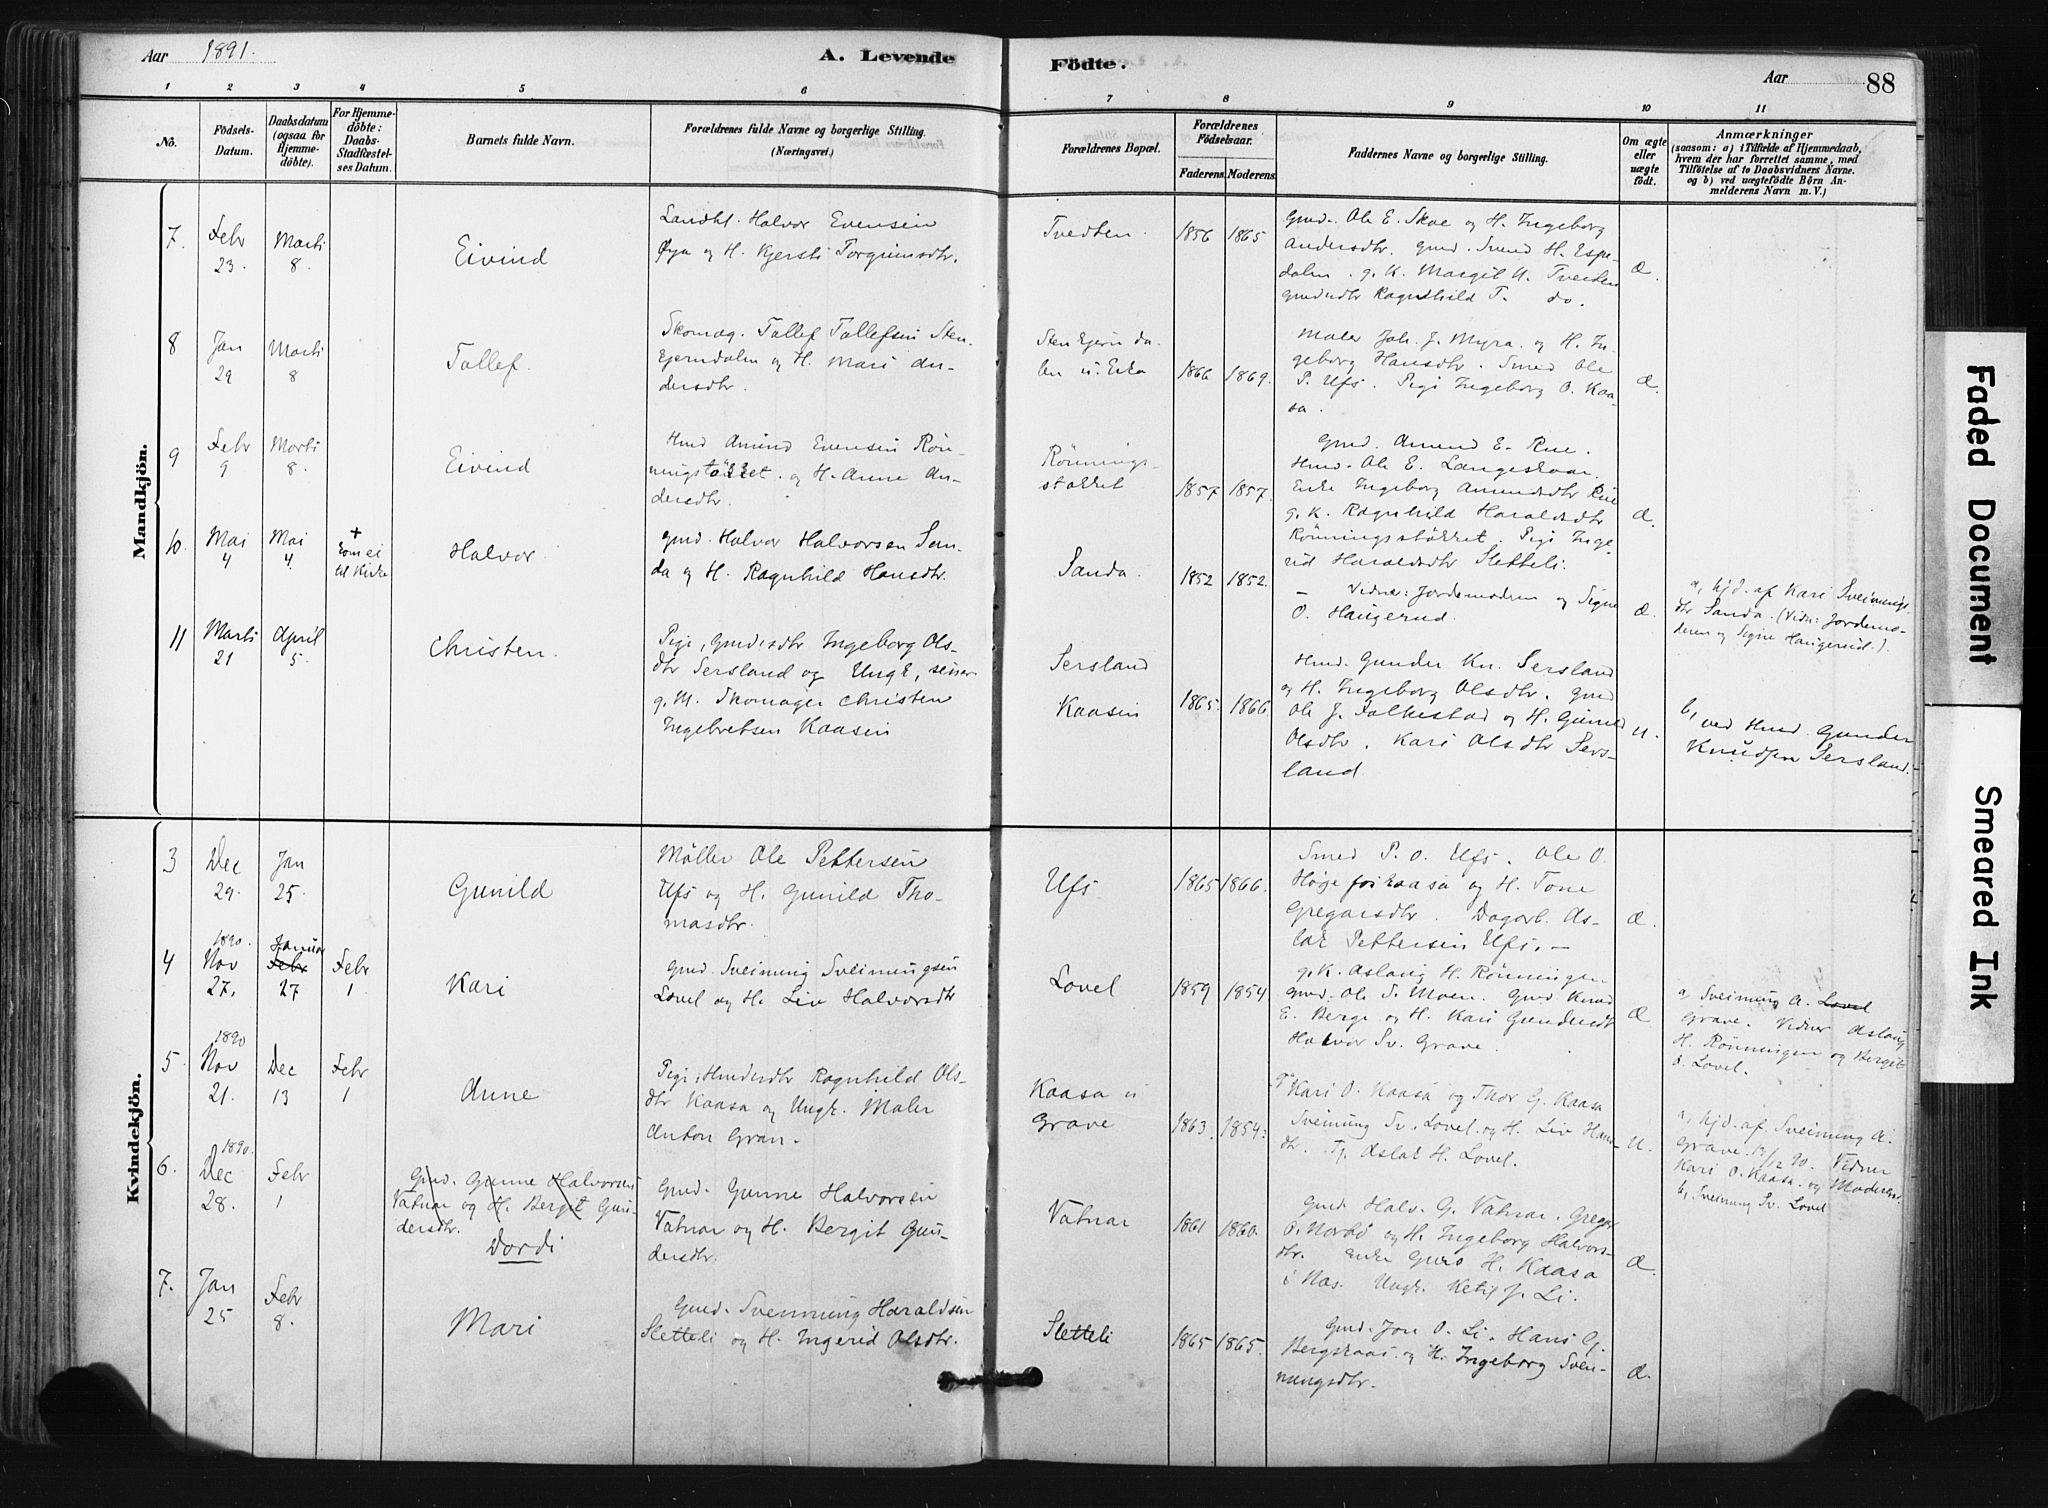 Aar 1891.
A. Levende
Födte.
Aar
88
1 2 3 4 5 6 7 8 9 10 11
No.
Födsels-
Datum.
Daabsdatum
(ogsaa for
Hjemme-
döbte).
For Hjemme-
döbte:
Daabs-
Stadfœstel-
ses Datum.
Barnets fulde Navn.
Forœldrenes fulde Navne og borgerlige Stilling.
(Nœringsvei.)
Forœldrenes Bopœl.
Forœldrenes
Födselsaar.
Faderens. Moderens.
Faddernes Navne og borgerlige Stilling.
Om œgte
eller
uœgte
födt.
Anmœrkninger
(saasom: a) i Tilfœlde af Hjemmedaab,
hvem der har forrettet samme, med
Tilföielse af to Daabsvidners Navne.
og b) ved uœgtefödte Börn An-
melderens Navn m. V.)
Mandkjön.
7.
Febr
23
Marts
8.
Eivind
Landh. Halvor Evensen
Øya og H. Kjersti Torgrimsdtr.
Tvedten.
1856 1865
Gmd. Ole E. Skoe og H. Ingeborg
Andersdtr. gmd. Svend H. Espe-
dalen. g. K. Margit H. Tveiten
gmdsdtr Ragnhild T. do.
Æ.
8
Jan
29
Marts
8
Tallef.
Skomag. Tallef Tallefsen Sten-
kjerndalen og H. Mari An-
dersdtr.
Stenkjernda-
len u. Eika
1866 1869.
Maler Joh. J. Myra. og H. In-
geborg Hansdtr. Smed Ole
P. Ufs. Pigi Ingeborg O. Kaa-
sa.
Æ.
9
Febr
9
Marts
8.
Eivind
Hmd Amund Evensen Rön-
ningstökket. og H. Anne An-
dersdtr.
Rönnings-
stökket
1857 1857.
Gmd. Amund E. Rue.
Hmd. Ole E. Langeskaar.
Enke Ingeborg Amundsdtr Rue
g. K. Ragnhild Haraldsdtr
Rönningsstökket. Pigi Inge-
rid Haraldsdtr Sletteli.
Æ.
10.
Mai
4
Mai
4.
+
Kom ei
til Kirke
Halvor.
Gmd. Halvor Halvorsen San-
da og H. Ragnhild Hansdtr.
Sanda.
1852 1852.
— Vidne: Jordemoderen og Signe
O. Haugerud.
Æ.
a, hjd. af Kari Sveinungs-
dtr Sanda. (Vidn: Jordemo-
deren og Signe Haugerud.).
11
Marts
21
April
5.
Christen.
Pige, Gmdsdtr Ingeborg Ols-
dtr Sersland og Ungk, senere
g. M. Skomager Christen
Ingebretsen Kaasin
Sersland
Kaasin
1865. 1866.
Hmd. Gunder Kn. Sersland
og H. Ingeborg Olsdtr. Gmd
Ole J. Falkestad og H. Gunild
Olsdtr. Kari Olsdtr Sers-
land
U.
b, ved Hmd. Gunder
Knudsen Sersland.
Kvindekjön.
3
Dec
29.
Jan
25.
Gunild
Möller Ole Pettersen
Ufs og H. Gunild Tho-
masdtr.
Ufs
1865 1866.
Smed P. O. Ufs. Ole O.
Høgefoskaasa og H. Tone
Gregarsdtr. Dagarb. As-
lak Pettersen Ufs. —
Æ.
4
1890.
Nov
27.
Januar
Febr
27
Febr
1
Kari
Gmd. Sveinung Sveinungsen
Lovel og H. Liv Halvorsdtr
Lovel
1859 1854
g. K. Aslaug H. Rönningen
Gmd. Ole S. Moen. Gmd. Knud
E. Berge og H. Kari Gundersdt
Halvor Sv. Grave.
Æ
a, Sveinung A. Lovel
Grave. Vidner Aslaug
H. Rönningen og Bergit
O. Lovel.
5.
1890
Nov
21.
Dec
13
Febr
1
Anne
Pige, Hmdsdtr Ragnhild Ols-
dtr Kaasa og Ungk. Maler
Anton Gran.
Kaasa u
Grave
1863. 1854.
Kari O. Kaasa og Thor G. Kaasa
Sveinung Sv. Lovel og H. Liv Hans-
dtr. Tj. Aslak H. Lovel.
U.
a, hjd. af Sveinung A.
Grave. 13/12 90. Vidner
Kari O. Kaasa og Moderen.
b, Sveinung Sv. Lovel
6.
1890.
Dec
28.
Febr
1
Gmd. Gunne Halvorsen
Vatnar og H. Bergit Gun-
dersdtr.
Dordi
Gmd. Gunne Halvorsen
Vatnar og H. Bergit Gun-
dersdtr.
Vatnar
1861 1860.
Gmd Halv. G. Vatnar. Gregar
O. Norbö og H. Ingeborg Halvors-
dtr. Enke Guro H. Kaasa
i Nes. Ungk. Ketil J. Li.
Æ.
7.
Jan
25
Febr
8.
Mari
Gmd. Svennung Haraldsen
Sletteli og H. Ingerid Olsdtr.
Sletteli
1865 1865.
Gmd. Jon O. Li. Hans G.
Bergskaas. og H. Ingeborg Sven-
nungsdtr.
Æ.
Faded Document
Smeared Ink